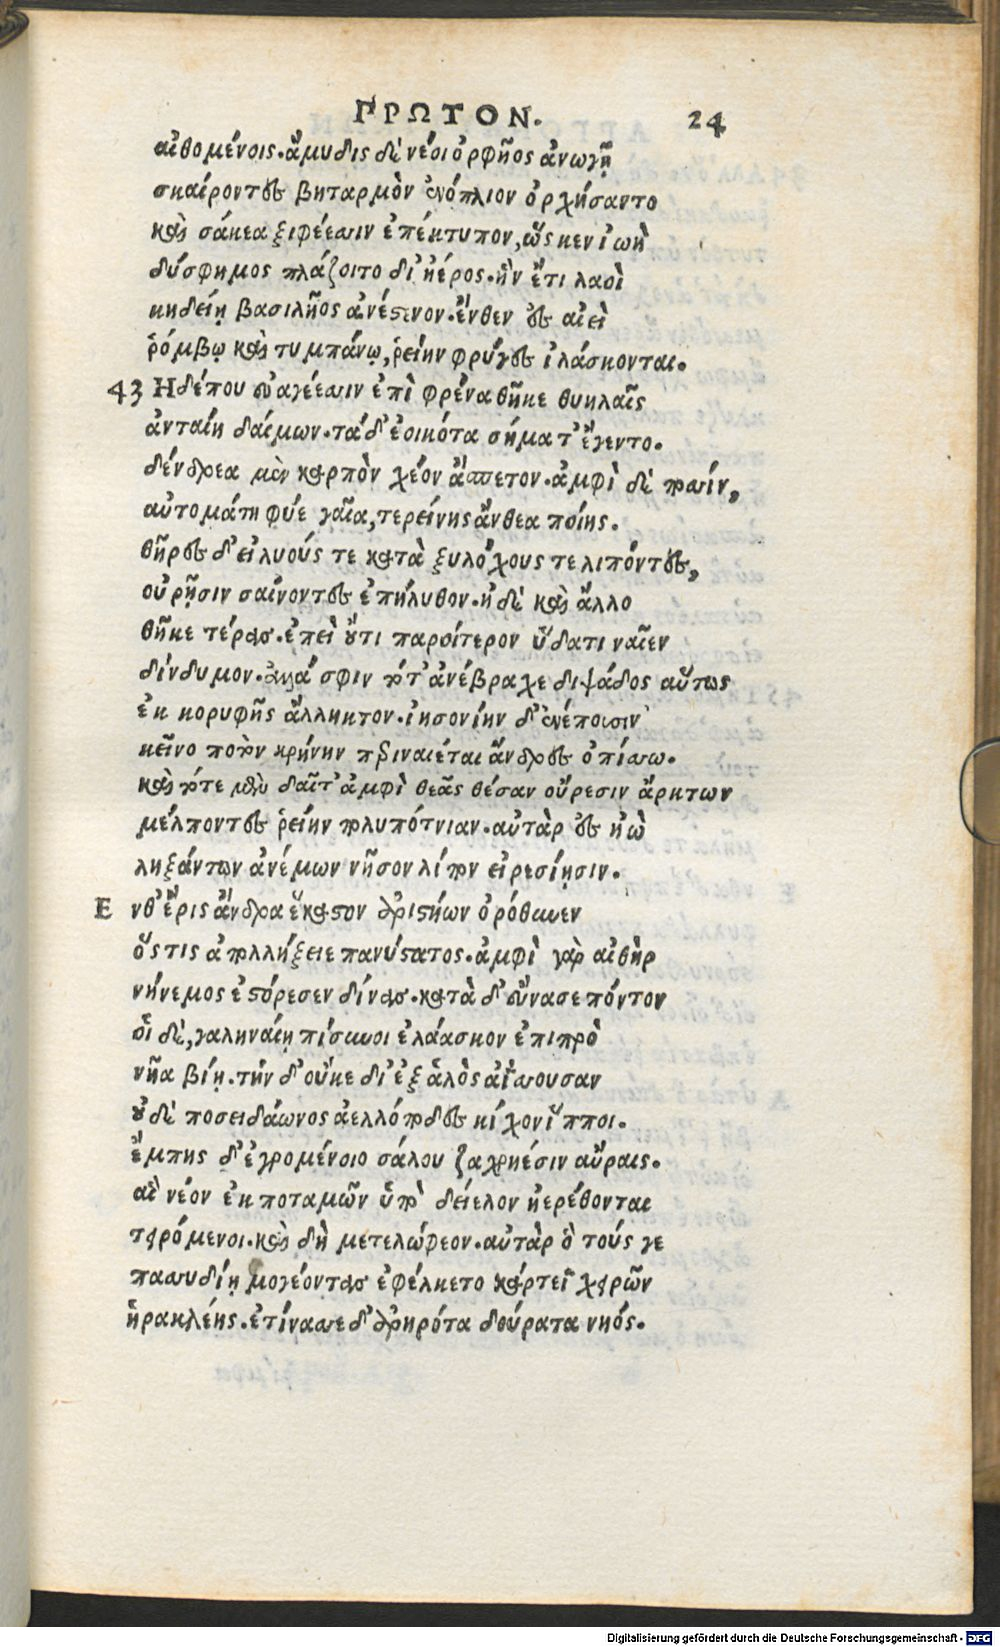 ΠΡΩΤΟΝ. 24
αἰθομένοις. ἄμυδις δὲ νέοι ὀρφῆος ἀνωγῇ
σκαίροντες βηταρμὸν ἐνόπλιον ὀρχήσαντο
καὶ σάκεα ξιφέεσσιν ἐπέκτυπον, ὥς κεν ἰωὴ
δύσφημος πλάζοιτο δι' ἠέρος. ἣν ἔτι λαοὶ
κηδείῃ βασιλῆος ἀνέστενον. ἔνθεν ἐς αἰεὶ
ῥόμβῳ καὶ τυμπάνῳ, ῥείην φρύγες ἱλάσκονται.
43 Η δέ που εὐαγέεσσιν ἐπὶ φρένα θῆκε θυηλαῖς
ἀνταίη δαίμων. τὰ δ' ἐοικότα σήματ' ἔγεντο.
δένδρεα μὲν καρπὸν χέον ἄσπετον. ἀμφὶ δὲ ποσσίν,
αὐτομάτη φύε γαῖα, τερείνης ἄνθεα ποίης.
θῆρες δ' εἰλυούς τε κατὰ ξυλόχους τε λιπόντες,
οὐρῇσιν σαίνοντες ἐπήλυθον. ἡ δὲ καὶ ἄλλο
θῆκε τέρας. ἐπεὶ οὔτι παροίτερον ὕδατι ναῖεν
δίνδυμον. ἀλλά σφιν τότ' ἀνέβραχε διψάδος αὔτως
ἐκ κορυφῆς ἄλληκτον. ἰησονίην δ' ἐνέπουσιν
κεῖνο ποτὸν κρήνην περιναιέται ἄνδρες ὀπίσσω.
καὶ τότε μὲν δαῖτ' ἀμφὶ θεᾶς θέσαν οὔρεσιν ἄρκτων
μέλποντες ῥείην πολυπότνιαν. αὐτὰρ ἐς ἠὼ
ληξάντων ἀνέμων νῆσον λίπον εἰρεσίῃσιν.
Ε νθ' ἔρις ἄνδρα ἕκαστον ἀριστήων ὀρόθυνεν
ὅς τις ἀπολλήξειε πανύστατος. ἀμφὶ γὰρ αἰθὴρ
νήνεμος ἐστόρεσεν δίνας. κατὰ δ' εὔνασε πόντον
οἱ δὲ, γαληναίῃ πίσυνοι ἐλάασκον ἐπιπρὸ
νῆα βίῃ. τὴν δ' οὔκε δι' ἐξ ἁλὸς ἀΐσσουσαν
οὐδὲ ποσειδάωνος ἀελλόποδες κίχον ἵπποι.
ἔμπης δ' ἐγρομένοιο σάλου ζαχρηέσιν αὔραις.
αἳ νέον ἐκ ποταμῶν ὑπὸ δείελον ἠερέθονται
τειρόμενοι. καὶ δὴ μετελώφεον. αὐτὰρ ὁ τούς γε
πασσυδίῃ μογέοντας ἐφέλκετο κάρτεϊ χειρῶν
ἡρακλέης. ἐτίνασσε δ' ἀρηρότα δούρατα νηός.
Digitalisierung gefördert durch die Deutsche Forschungsgemeinschaft - DFG